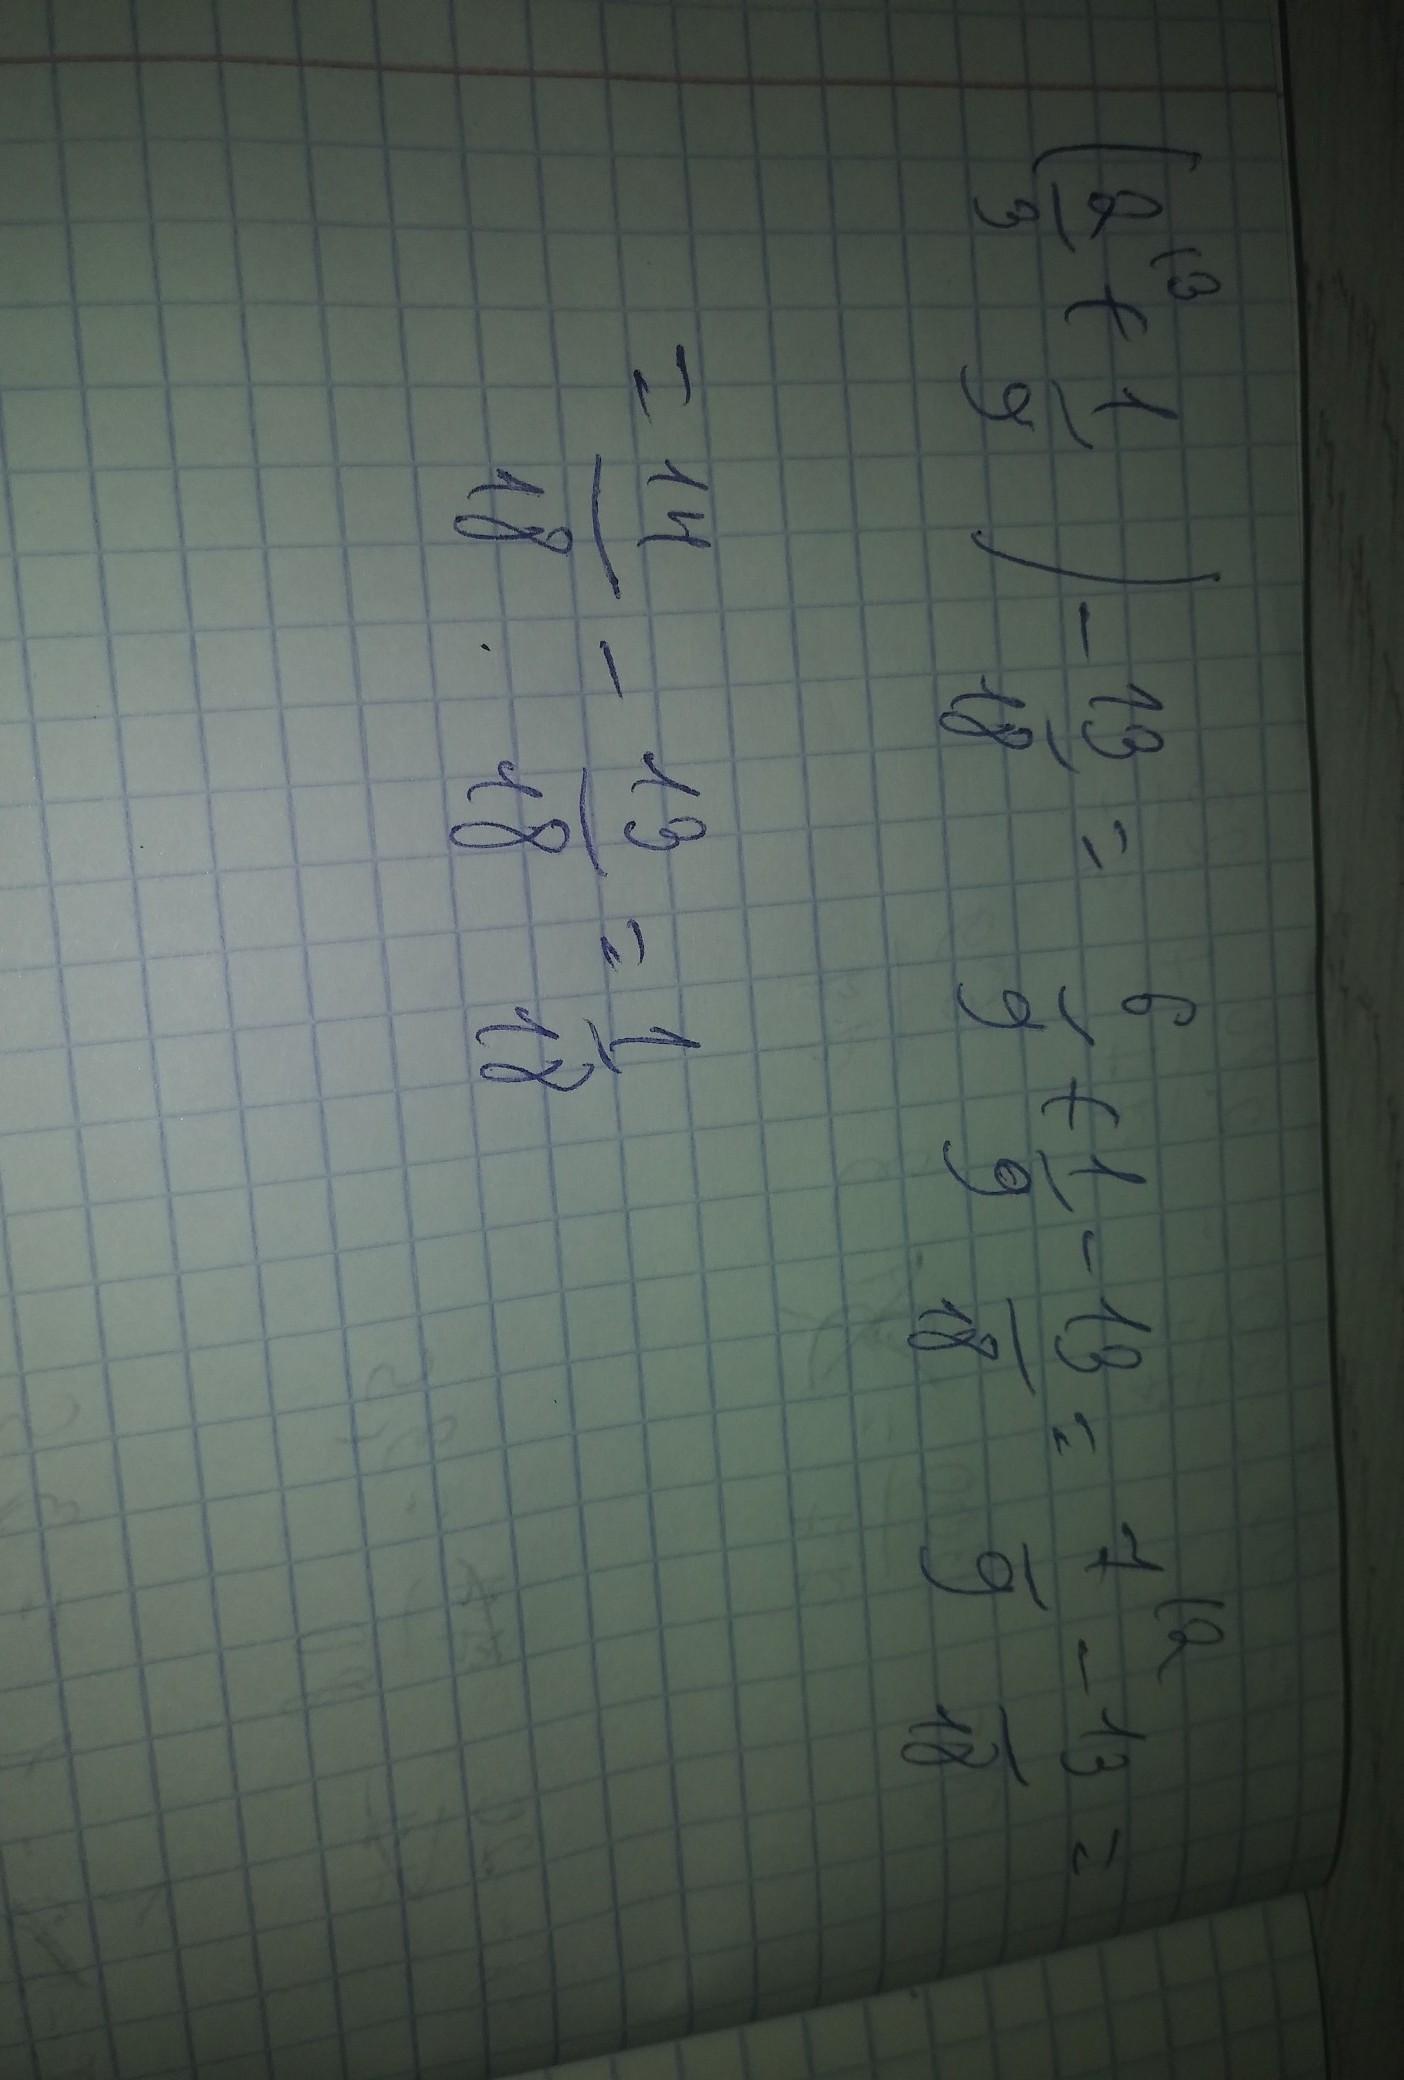 (2/3 ⁽³ + 1/9) - 13/18 = 6/9 + 1/9 - 13/18 = 7/9 ⁽² - 13/18 =
= 14/18 - 13/18 = 1/18